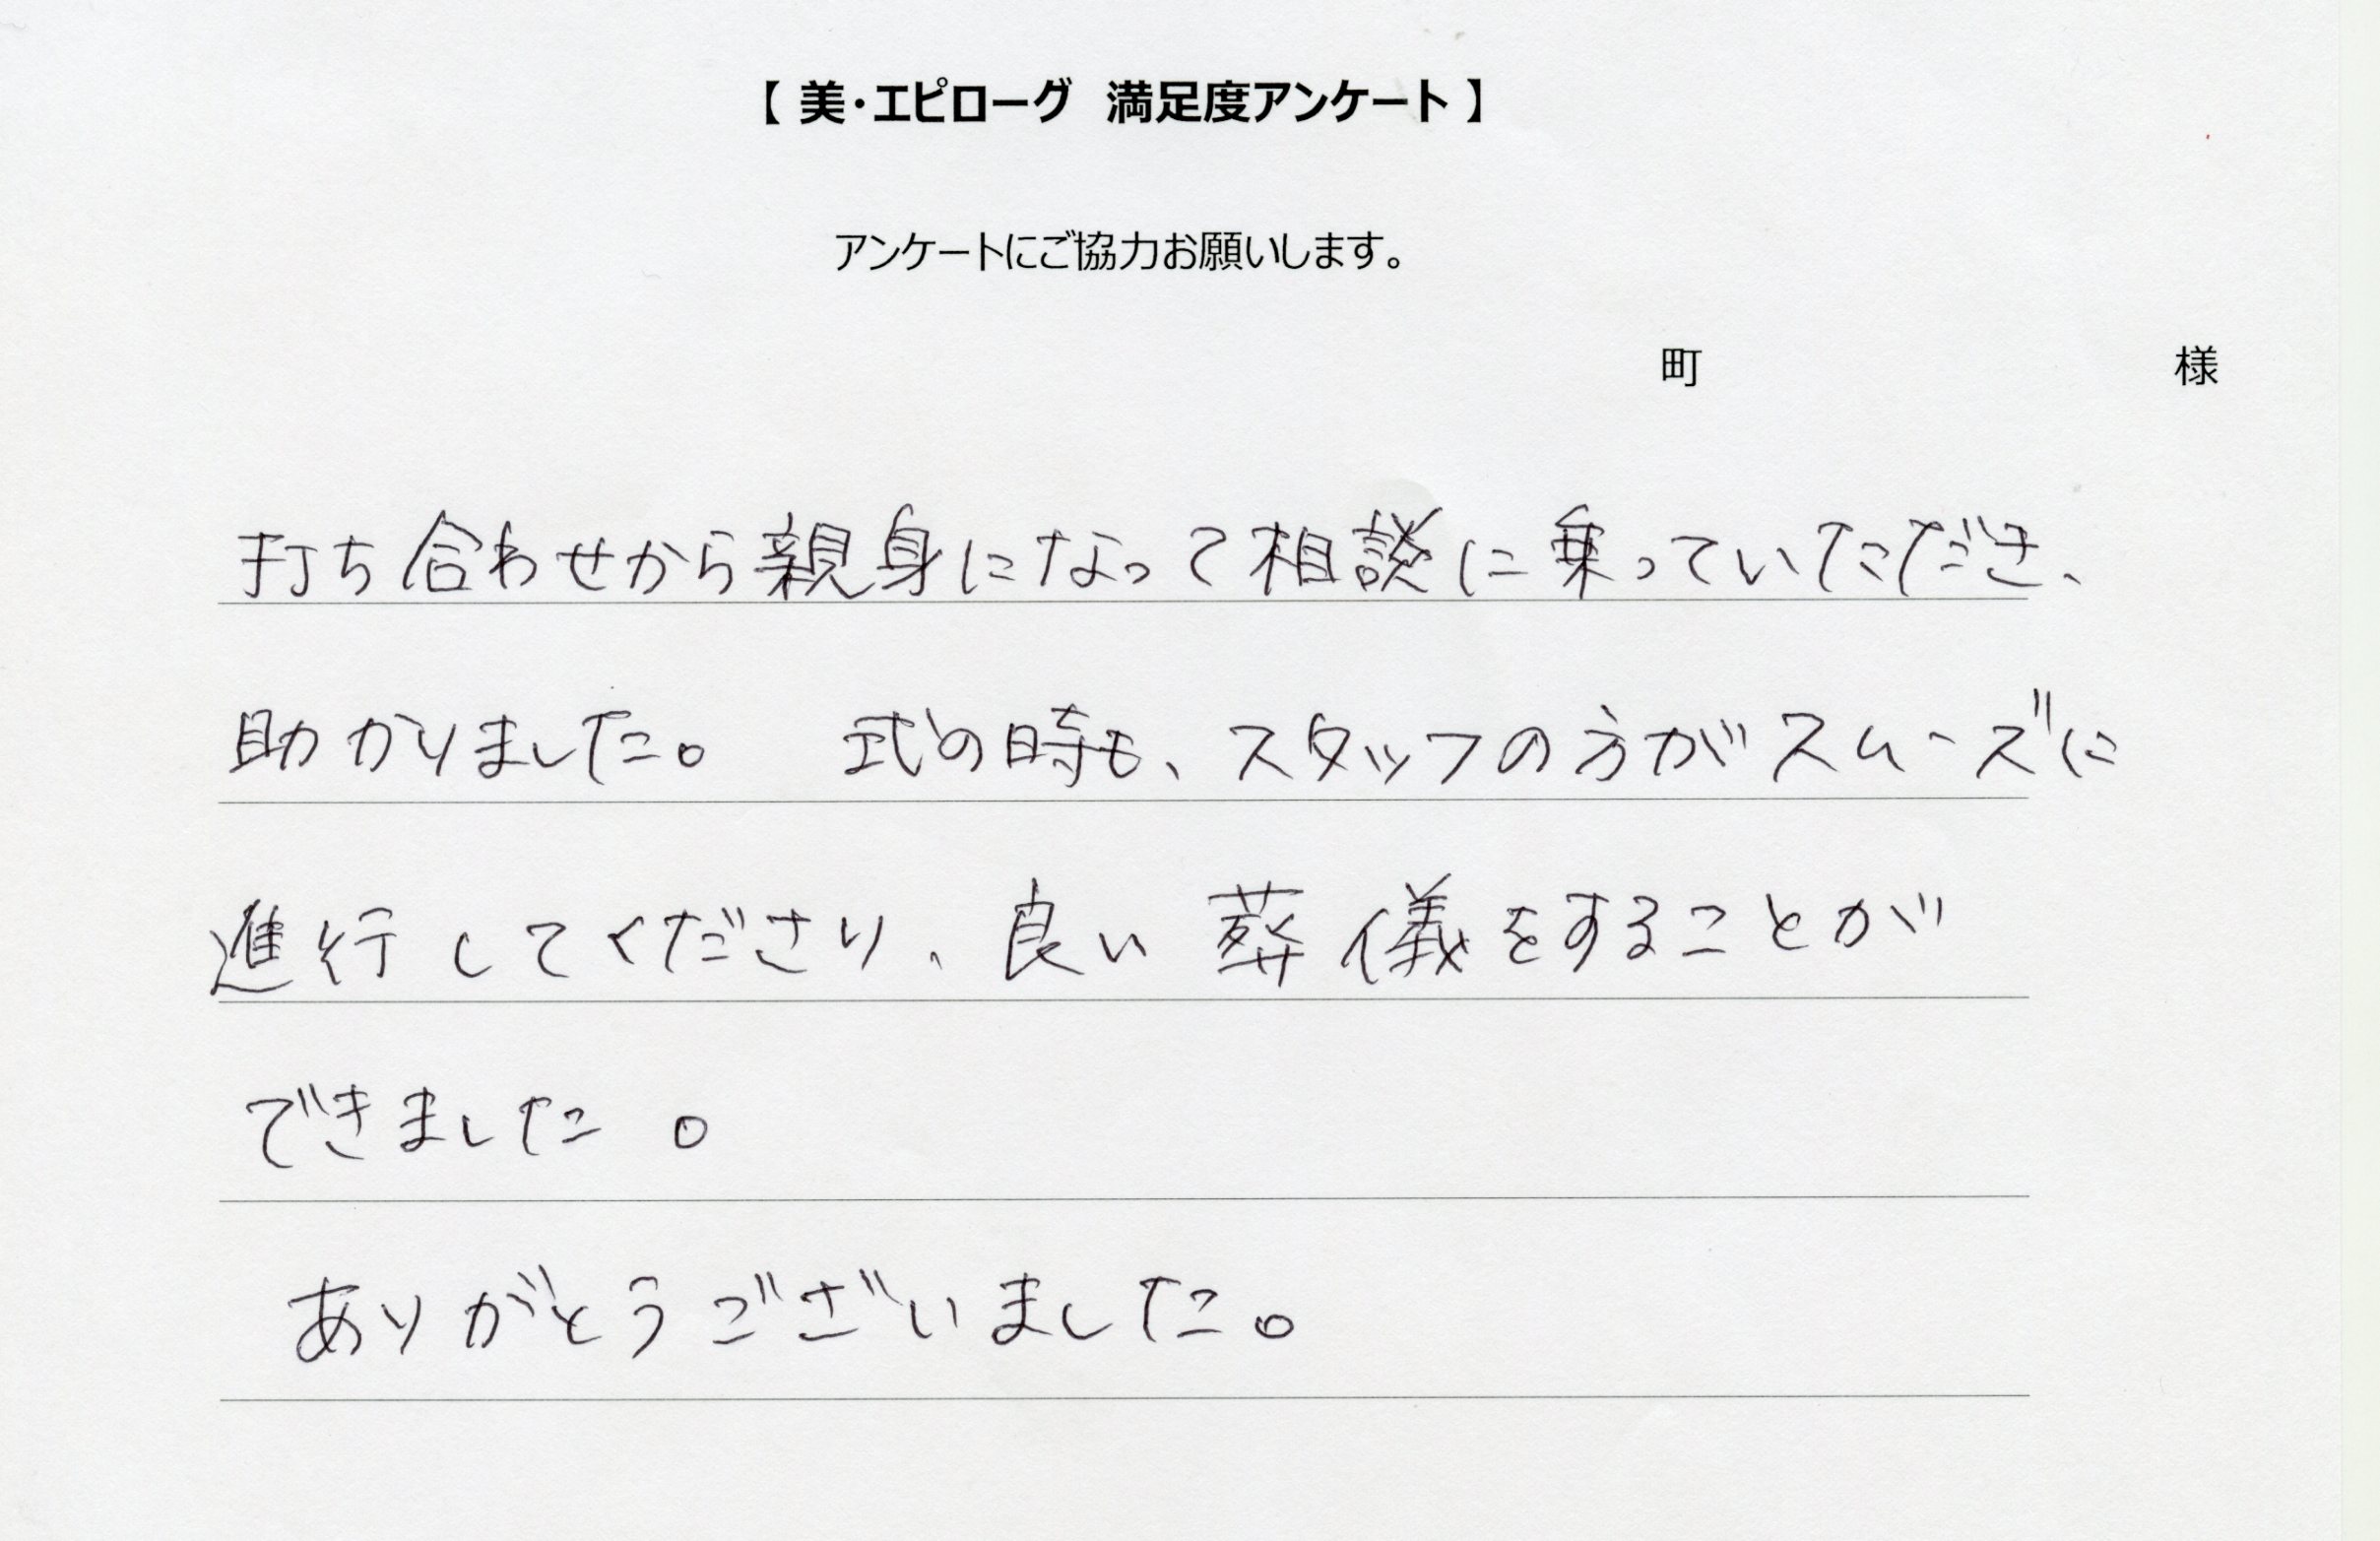 【 美・エピローグ 満足度アンケート 】
アンケートにご協力お願いします。
町 様
打ち合わせから親身になって相談に乗っていただき、
助かりました。 式の時も、スタッフの方がスムーズに
進行してくださり、良い葬儀をすることが
できました。
ありがとうございました。